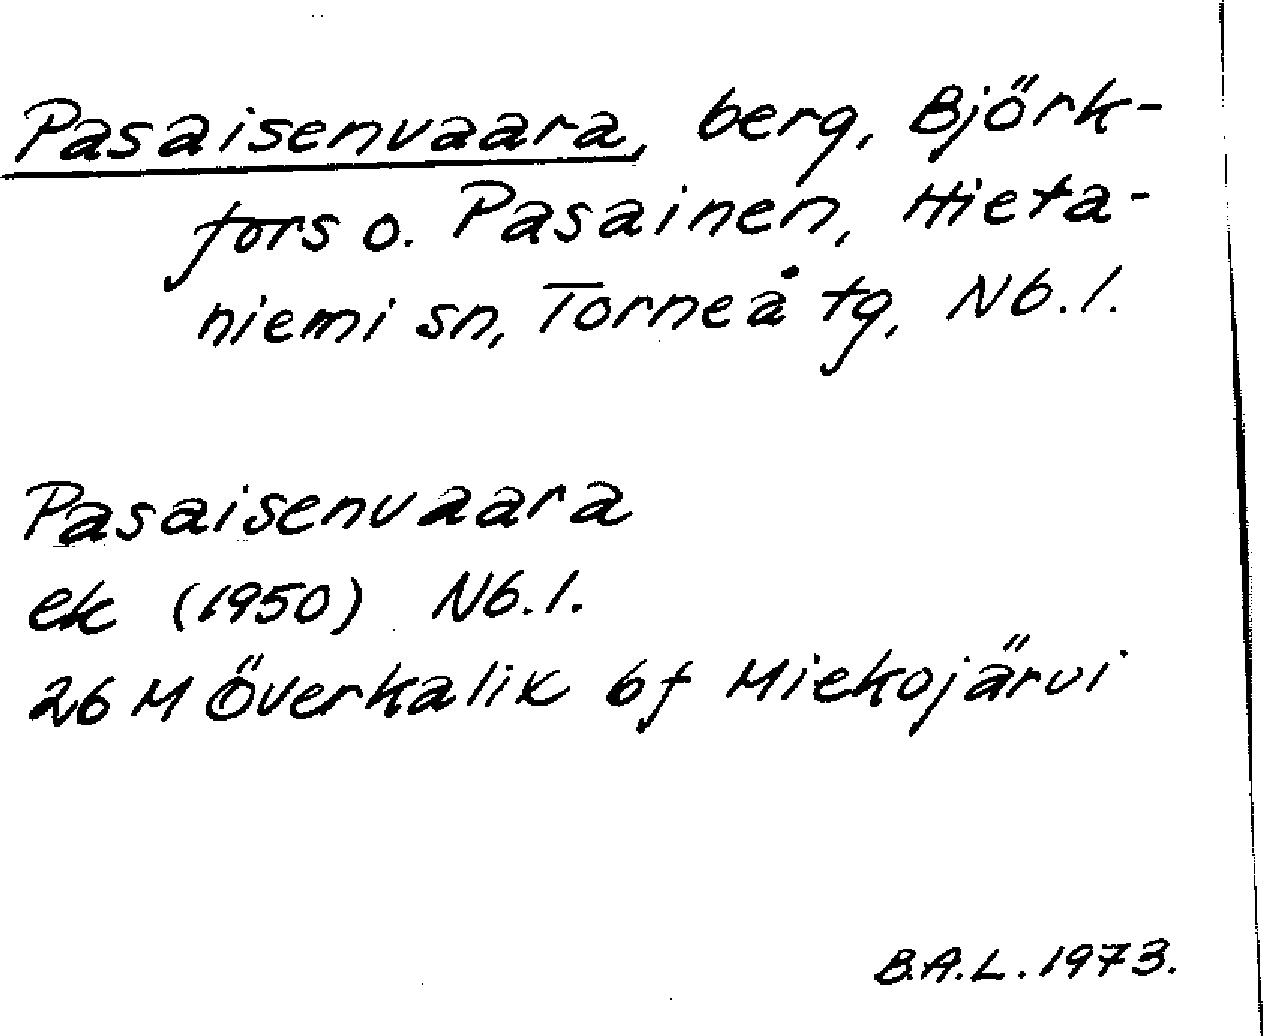 Pasaisenvaara, berg, Björk-
fors o. Pasainen, Hieta-
niemi sn, Torneå tg, Nb. l.
Pasaisenvaara
ek (1950) Nb. l.
26 M Överkalix bf Miekojärvi
B.A.L. 1973.